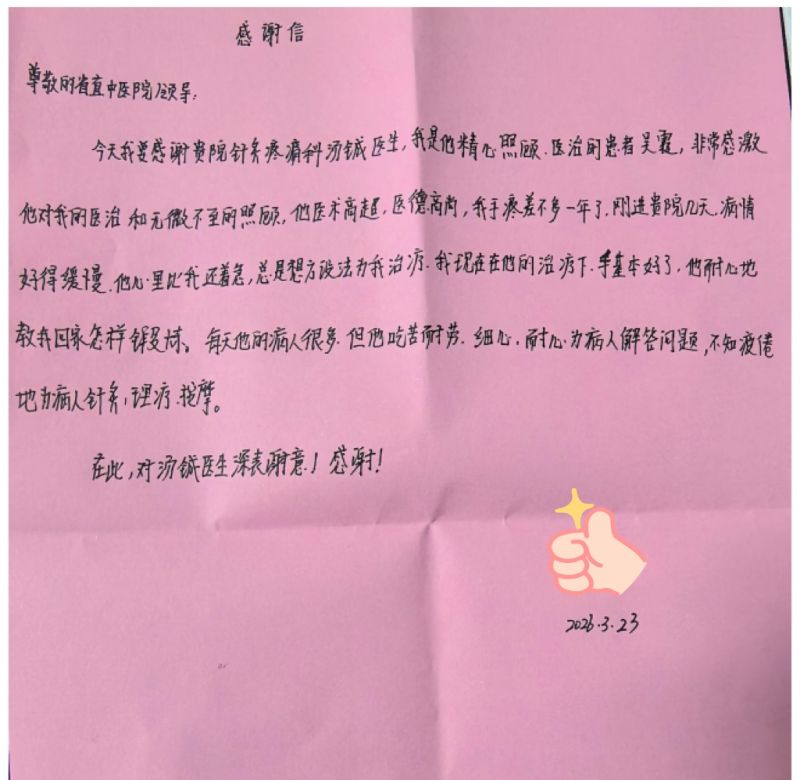 感谢信
尊敬的省直中医院领导:
今天我要感谢贵院针灸疼痛科汤铖医生,我是他精心照顾.医治的患者吴霞,非常感激
他对我的医治和无微不至的照顾,他医术高超.医德高尚,我手疼差不多一年了,刚进贵院几天,病情
好得缓慢.他心里比我还着急,总是想方设法为我治疗.我现在在他的治疗下.手基本好了,他耐心地
教我回家怎样锻炼。每天他的病人很多.但他吃苦耐劳.细心.耐心为病人解答问题,不知疲倦
地为病人针灸,理疗.按摩。
在此,对汤铖医生深表谢意!感谢!
2026.3.23